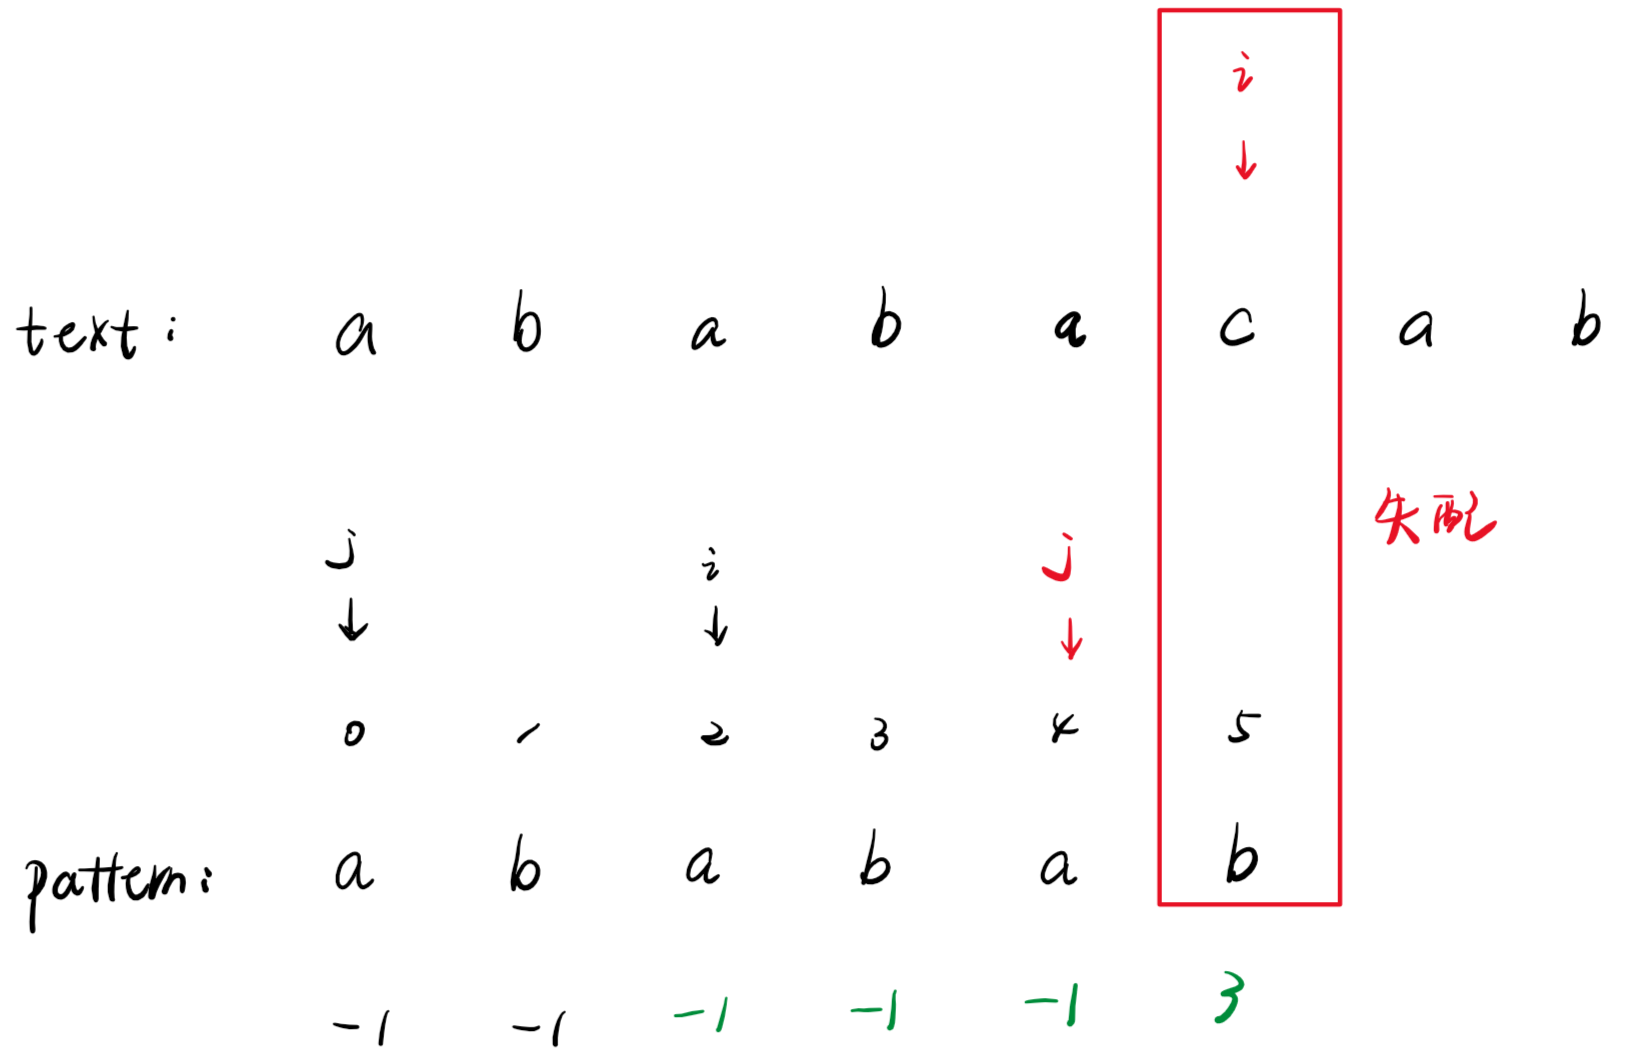 i
↓
text: a b a b a c a b
失配
j i j
↓ ↓ ↓
0 1 2 3 4 5
pattern: a b a b a b
-1 -1 -1 -1 -1 3